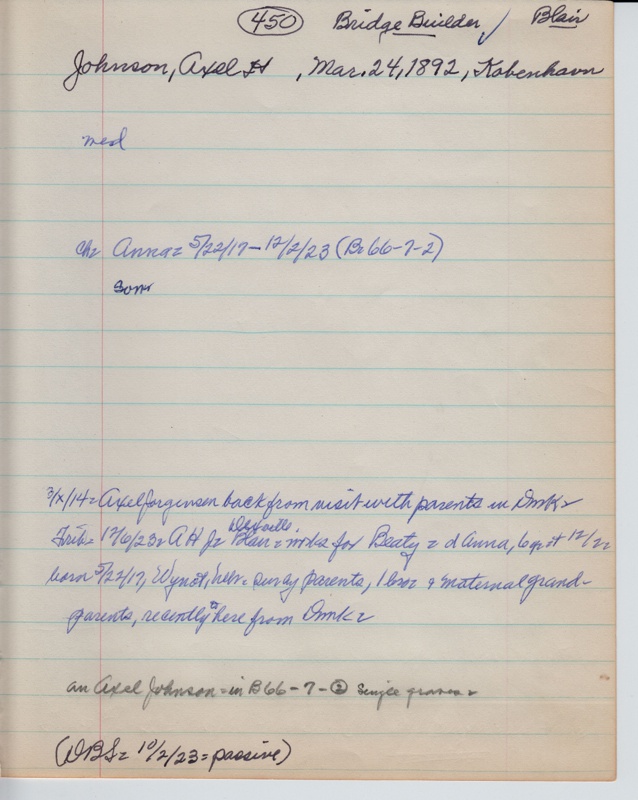 450 Bridge Builder ✓ Blair
Johnson, Axel H , Mar. 24, 1892, Kobenhavn
med
ch= Anna= 5/22/17 – 12/2/23 (B 66-7-2)
Son
3/X/14 = Axel Jorgensen back from visit with parents in Dmk=
Trib= 12/6/23= A H J= Blair = works for Beaty = d Anna, 6 12/
born 5/22/17, Nebr= surv by parents, 1 bro= & maternal grand-
parents, recently here from Dmk=
an Axel Johnson = in B66-7-2 single graves=
(DBS= 10/2/23= passive)